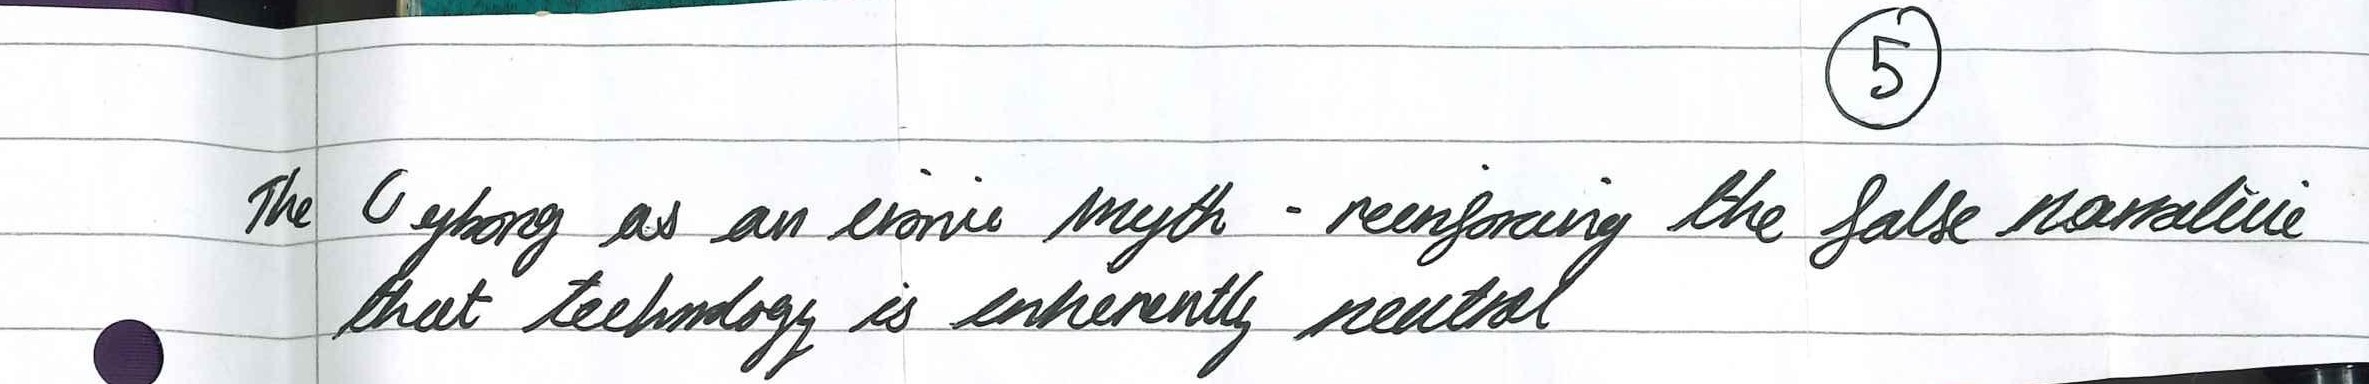 5
The Cyborg as an ironic myth - reenforcing the false narrative
that technology is inherently neutral